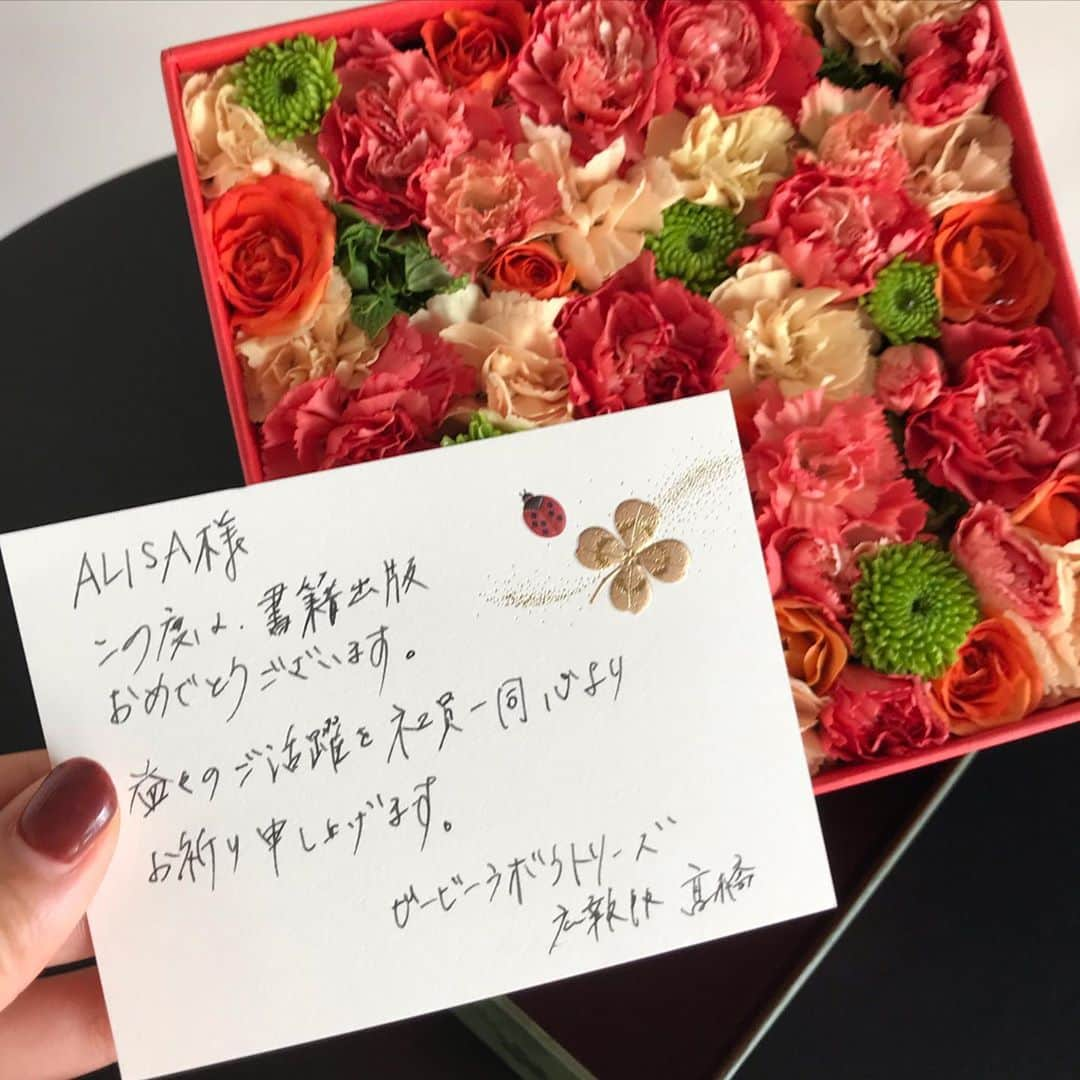 ALISA様
この度は、書籍出版
おめでとうございます。
益々のご活躍を社員一同心より
お祈り申し上げます。
ビービーラボラトリーズ
広報部 髙橋